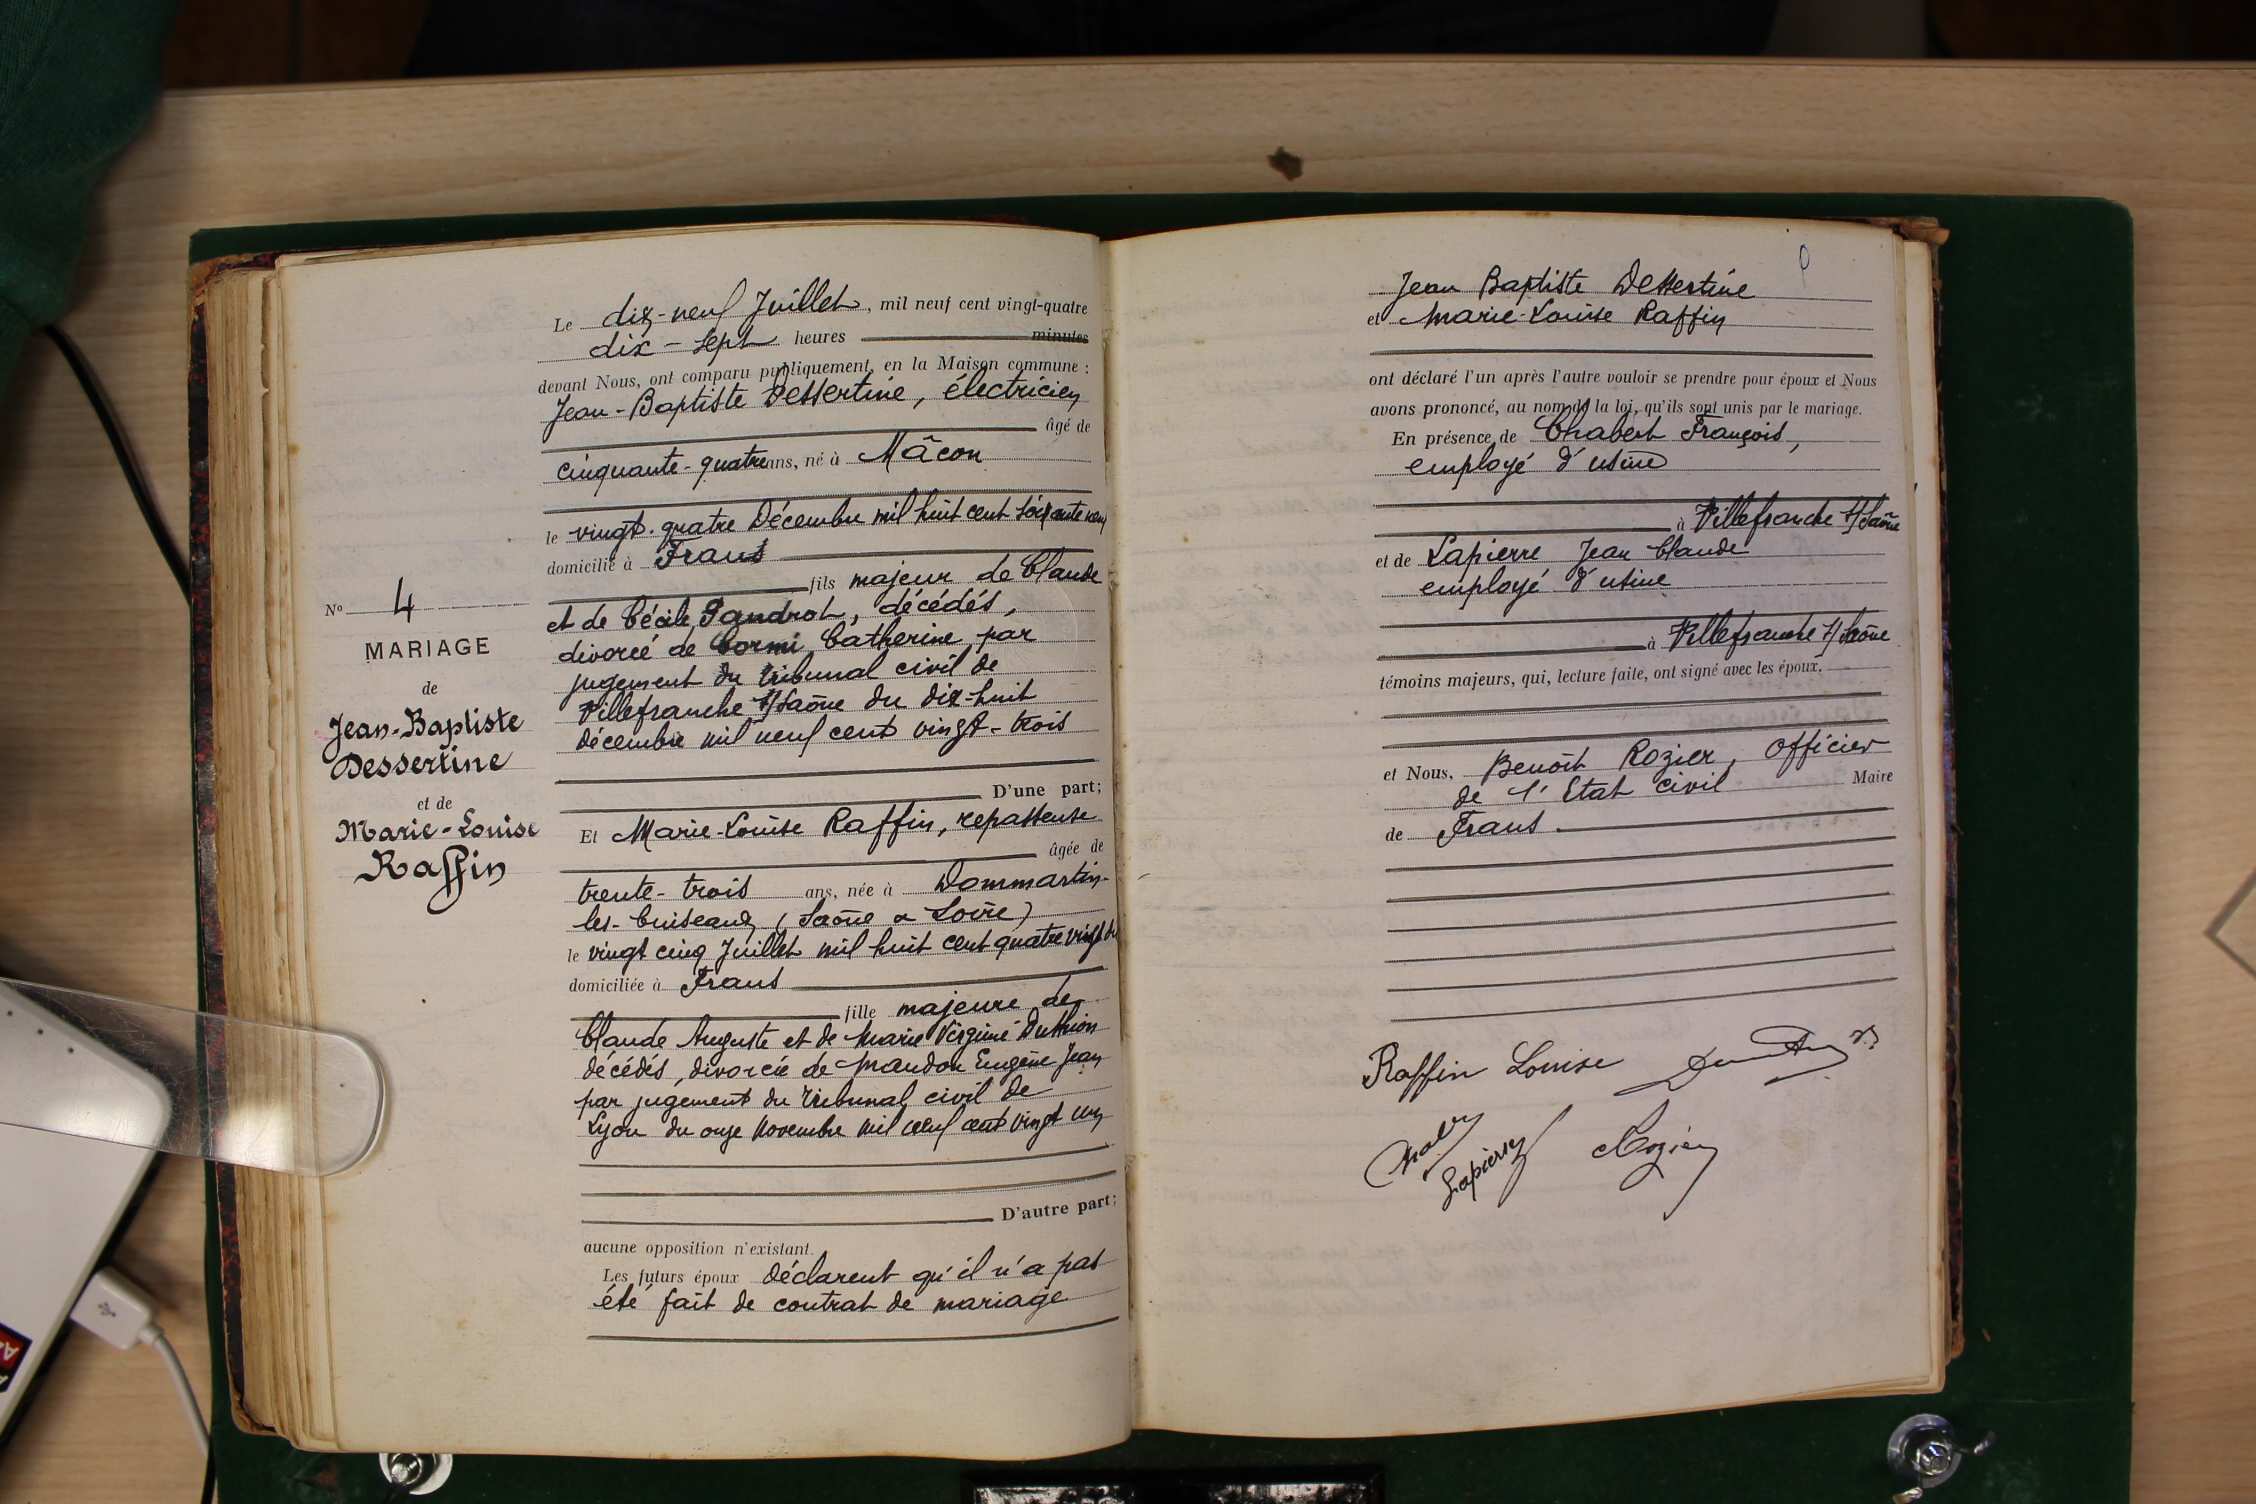 Le dix-neuf Juillet, mil neuf cent vingt-quatre
dix-sept heures minutes
devant Nous, ont comparu publiquement, en la Maison commune :
Jean-Baptiste Dessertine, électricien
âgé de
cinquante-quatre ans, né à Mâcon
le vingt-quatre Décembre mil huit cent soixante neuf
domicilié à Frans
fils majeur de Claude
et de Cécile Gandrot, décédés,
divorcé de Cormi Catherine par
jugement du tribunal civil de
Villefranche s/Saône du dix-huit
décembre mil neuf cent vingt-trois
D'une part;
Et Marie-Louise Raffin, repasseuse
âgée de
trente-trois ans, née à Dommartin-
les-Cuiseaux (Saône & Loire)
le vingt cinq Juillet mil huit cent quatre vingt
domiciliée à Frans
fille majeure de
Claude Auguste et de Marie Virginie Duthion
décédés, divorcée de Mandon Eugène Jean
par jugement du tribunal civil de
Lyon du onze Novembre mil neuf cent vingt un
D'autre part;
aucune opposition n'existant.
Les futurs époux déclarent qu'il n'a pas
été fait de contrat de mariage
No 4
MARIAGE
de
Jean-Baptiste
Dessertine
et de
Marie-Louise
Raffin
Jean Baptiste Dessertine
et Marie-Louise Raffin
ont déclaré l'un après l'autre vouloir se prendre pour époux et Nous
avons prononcé, au nom de la loi, qu'ils sont unis par le mariage.
En présence de Chabert François,
employé d'usine
à Villefranche s/Saône
et de Lapierre Jean Claude
employé d'usine
à Villefranche s/Saône
témoins majeurs, qui, lecture faite, ont signé avec les époux.
et Nous, Benoît Rozier, Officier
de l'Etat civil Maire
de Frans.
Raffin Louise
Lapierre Rozier